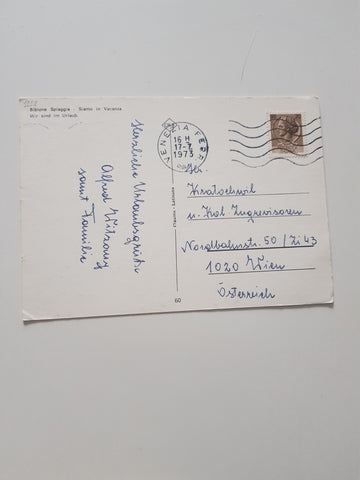 Bibione Spiaggia - Siamo in Vacanza
Wir sind im Urlaub
Herzliche Urlaubsgrüße
Alfred
samt Familie
VENEZIA FERR
16 H
17-7
1973
60
Kratochwil
u. Kol. Zugrevisoren
Nordbahnstr. 50 / Zi 43
1020 Wien
Österreich